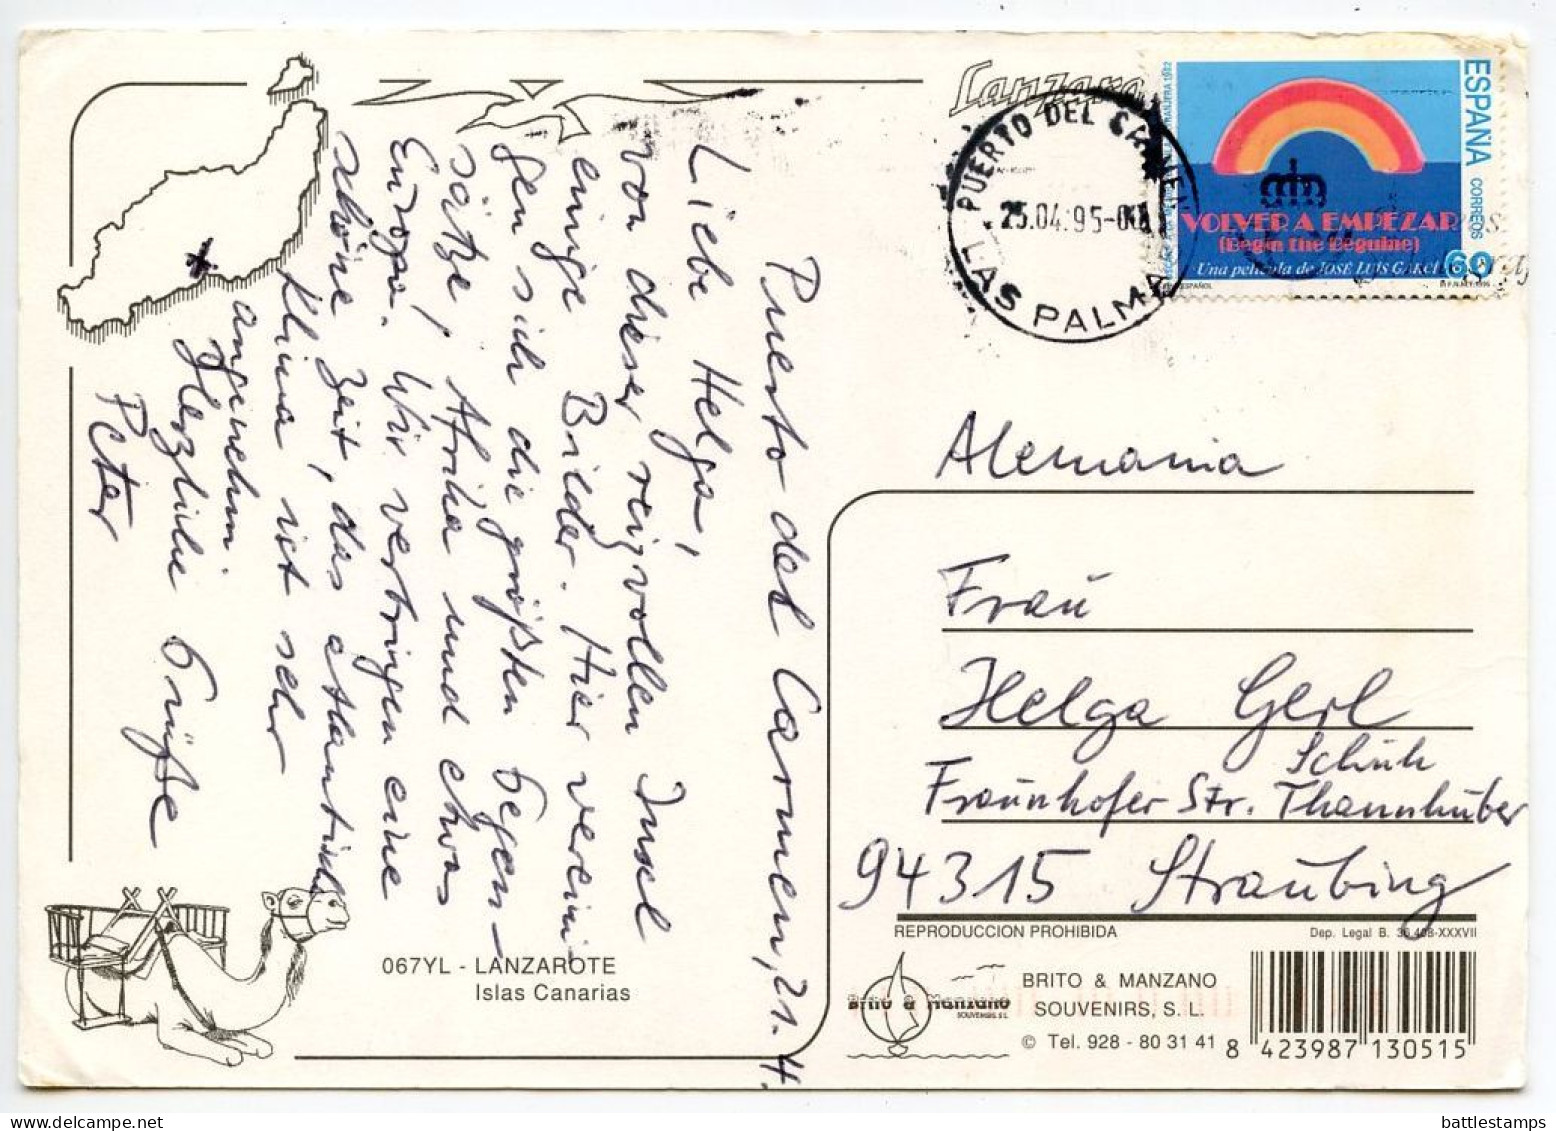 Puerto del Carmen, 21.4.
Liebe Helga,
von dieser reizvollen Insel
einige Bilder. Hier verein-
gen sich die größten Gegen-
sätze, Afrika und etwas
Europa. Wir verbringen eine
schöne Zeit, das atlantische
Klima ist sehr
angenehm.
Herzliche Grüße
Peter
067YL - LANZAROTE
Islas Canarias
PUERTO DEL CARMEN
25.04.95
LAS PALMAS
ESPAÑA
CORREOS
60
VOLVER A EMPEZAR
(Begin the Beguine)
Una película de JOSÉ LUIS GARCI
Alemania
Frau
Helga Gerl
Schuh
Fraunhofer Str. Thannhuber
94315 Straubing
REPRODUCCION PROHIBIDA
Dep. Legal B. 36.408-XXXVII
Brito & Manzano
SOUVENIRS, S.L.
BRITO & MANZANO
SOUVENIRS, S. L.
© Tel. 928 - 80 31 41
8 423987 130515
battlestamps